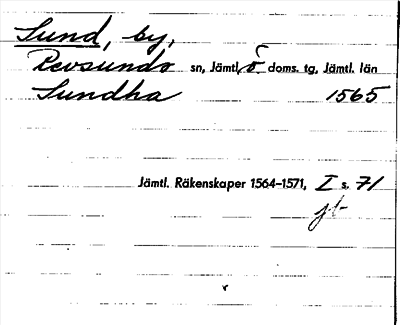 Sund, by,
Revsunds sn, Jämtl. ö doms. tg, Jämtl. län
Sundha 1565
Jämtl. Räkenskaper 1564–1571, I s. 71